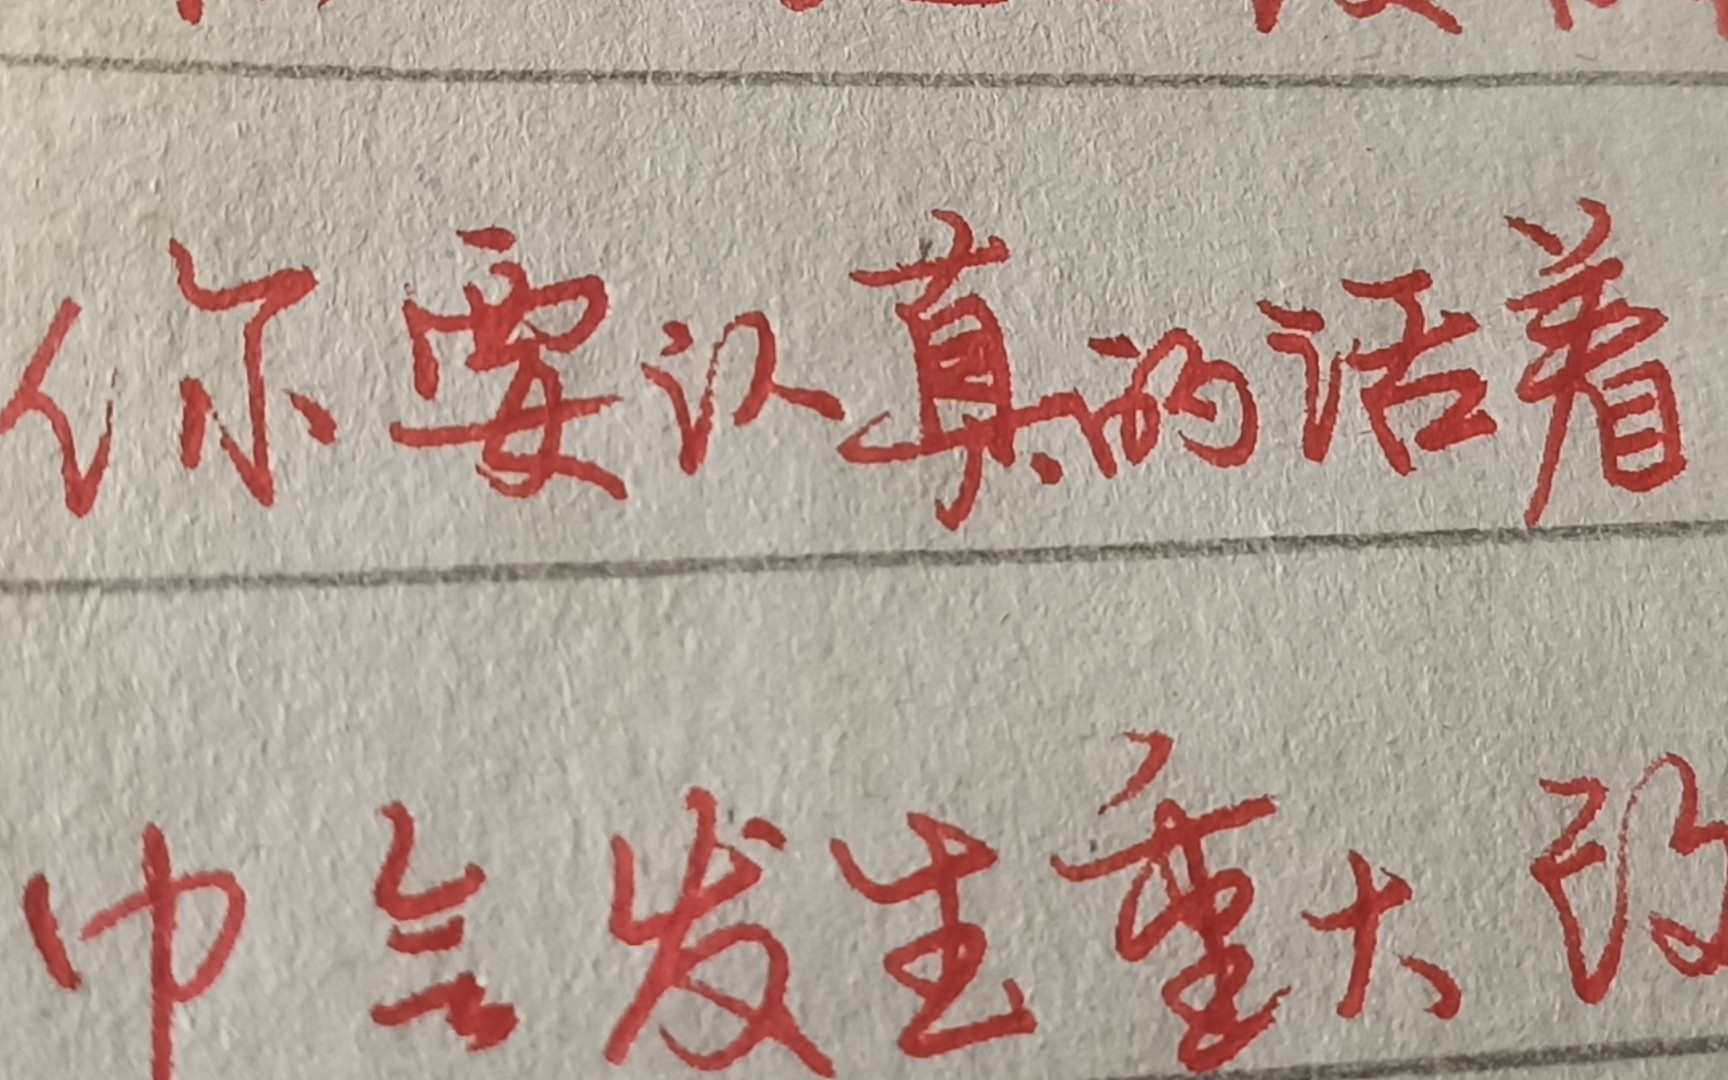 你要认真的活着
中会发生重大改